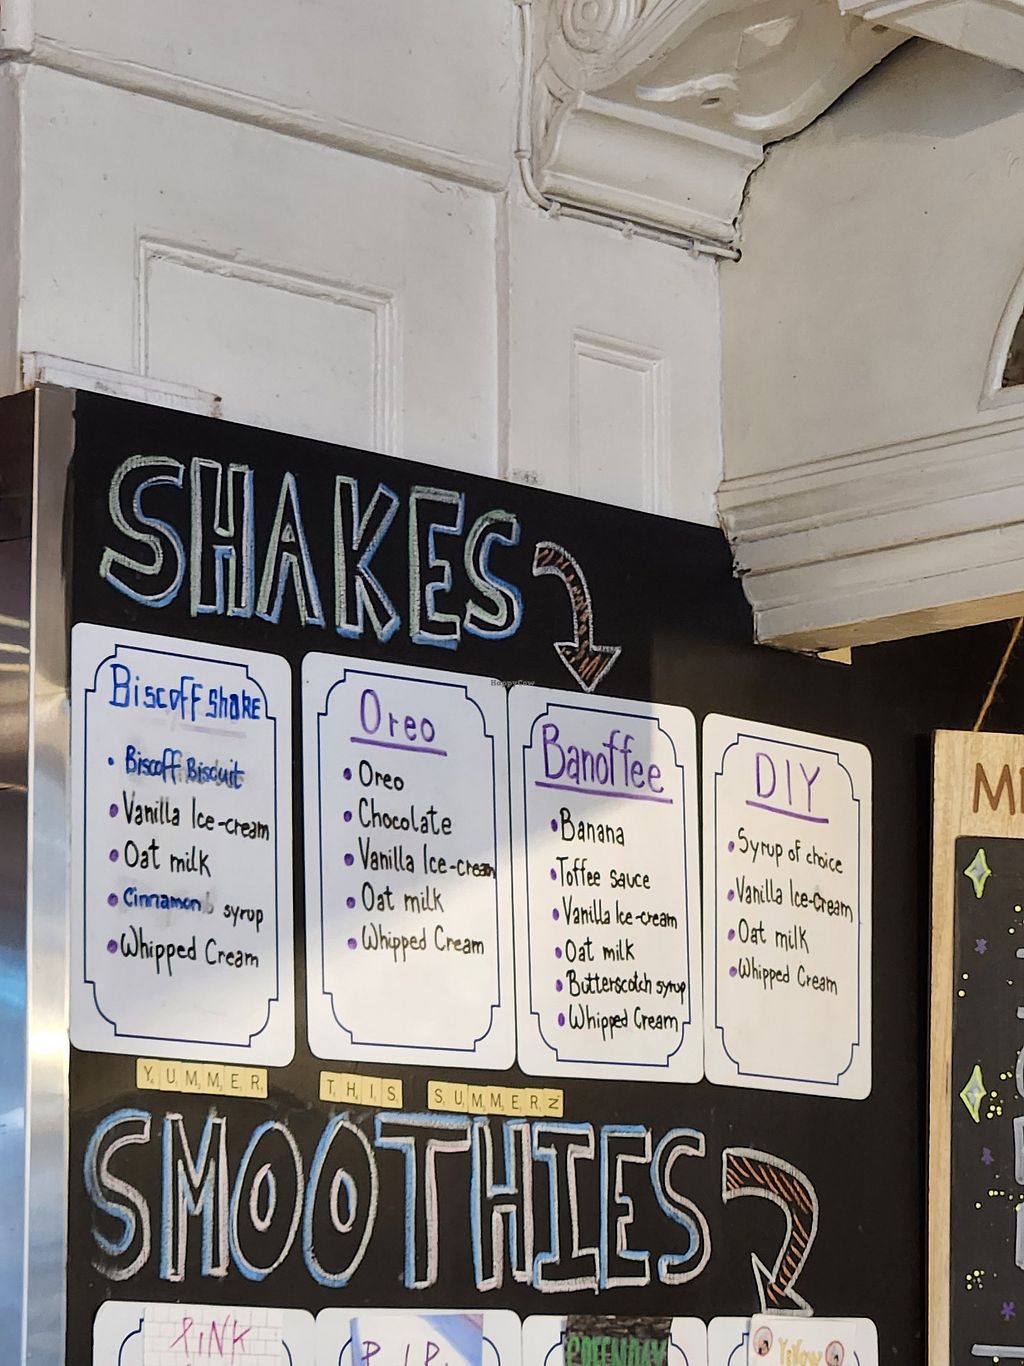 SHAKES
Biscoff Shake
• Biscoff Biscuit
• Vanilla Ice-cream
• Oat milk
• Cinnamon syrup
• Whipped Cream
Oreo
• Oreo
• Chocolate
• Vanilla Ice-cream
• Oat milk
• Whipped Cream
Banoffee
• Banana
• Toffee sauce
• Vanilla Ice-cream
• Oat milk
• Butterscotch syrup
• Whipped Cream
DIY
• Syrup of choice
• Vanilla Ice-cream
• Oat milk
• Whipped Cream
HappyCow
YUMMER THIS SUMMERZ
SMOOTHIES
PINK
Yellow